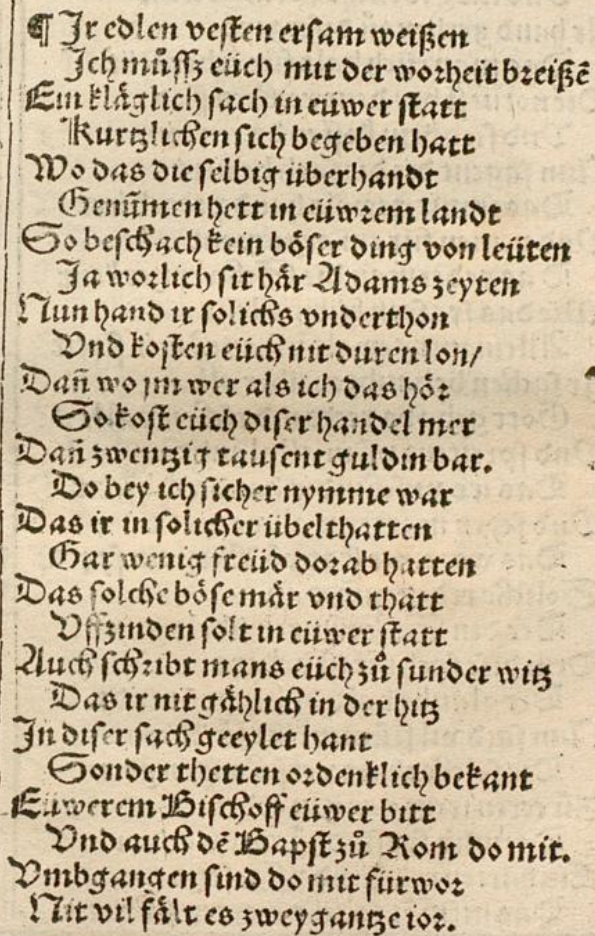 ¶ Ir edlen vesten ersam weißen
Ich můſſz eüch mit der worheit breißē
Ein kläglich sach in eüwer statt
Kurtzlichen sich begeben hatt
Wo das die selbig überhandt
Genūmen hett in eüwrem landt
So beschach kein böser ding von leüten
Ja worlich sit här Adams zeyten
Nun hand ir solichs vnderthon
Vnd kosten eüch nit duren lon/
Dañ wo im wer als ich das hör
So kost eüch diser handel mer
Dañ zwentzig tausent guldin bar.
Do bey ich sicher nymme war
Das ir in solicher übelthatten
Gar wenig freüd dorab hatten
Das solche böse mär vnd thatt
Vffzinden solt in eüwer statt
Auch schribt mans eüch zů sunder witz
Das ir nit gählich in der hitz
In diser sach geeylet hant
Sonder thetten ordenklich bekant
Eüwerem Bischoff eüwer bitt
Vnd auch dē Bapst zů Rom do mit.
Vmbgangen sind do mit fürwor
Nit vil fält es zwey gantze ior.